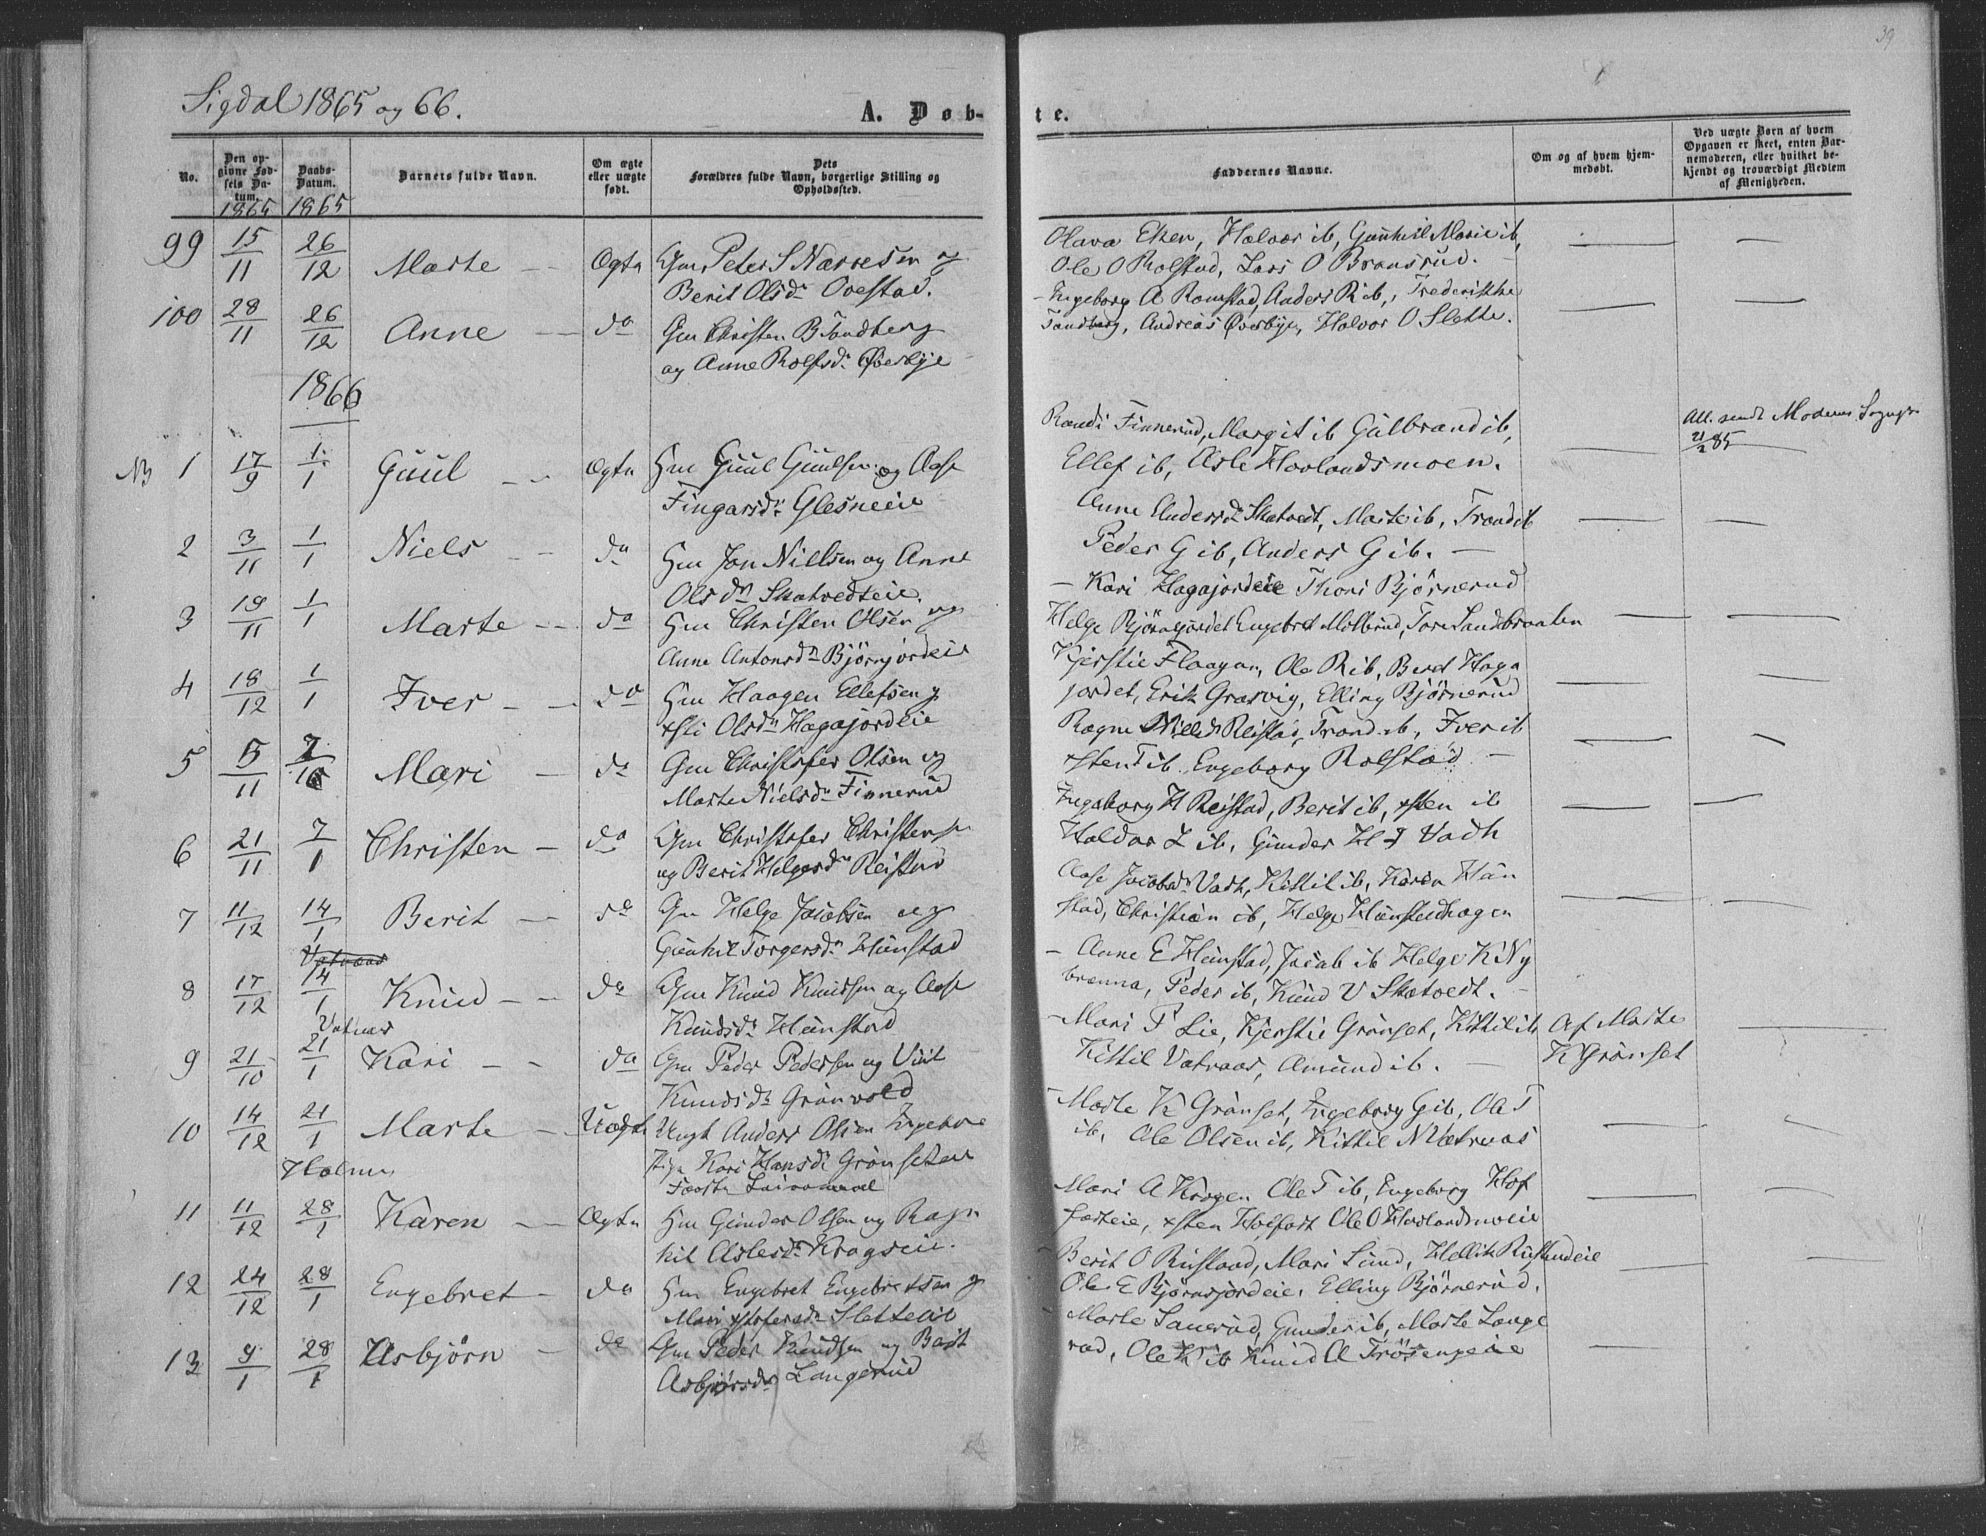 39
Sigdal 1865 og 66.
A. Døb-
te.
No.
Den op-
givne Fød-
sels Da-
tum.
1865
Daabs-
Datum.
1865
Barnets fulde Navn.
Om ægte
eller uægte
født.
Dets
Forældres fulde Navn, borgerlige Stilling og
Opholdssted.
Faddernes Navne.
Om og af hvem hjem-
medøbt.
Ved uægte Børn af hvem
Opgaven er skeet, enten Bar-
nemoderen, eller hvilket be-
kjendt og troværdigt Medlem
af Menigheden.
99 15/11 26/12 Marte Ægte Gm Peter S Narvesen og
Berit Olsdr Ovestad.
Olava Eken, Halvor ib, Gunhil Marie ib,
Ole O Rolstad, Lars O Bransrud.
100 28/11 26/12 Anne do Gm Christen B Sandberg
og Anne Rolfsdr Øvesbye
Engeborg A Romstad, Anders R ib, Frederikke
Sandberg, Andreas Øvesbye, Halvor O Slette.
1866
NB 1 17/9 1/1 Guul Ægte Hm Guul Guulsen og Aase
Fingarsdr Glesneeie
Randi Finnerud, Margit ib Gulbrand ib,
Ellef ib, Asle Hovlandsmoen.
Att. sendt Moderens Sognepr
21/2 85
2 3/11 1/1 Niels do Hm Jon Nielsen og Anne
Olsdr Skatvedteie.
Anne Andersdr Skatvedt, Marte ib, Trond ib
Peder G ib, Anders G ib.
3 19/11 1/1 Marte do Hm Christen Olsen og
Anne Antonsdr Bjørnjordeie
Kari Hagajordeie Thori Bjørnerud
Helge Bjørnejordet Engebret Molterud, Tore Sandsbraaten
4 18/12 1/1 Iver do Hm Haagen Ellefsen og
Olsdr Hagajordeie
Kjerstie Flaagan, Ole R ib, Berit Haga
jordet, Erik Grasvig, Elling Bjørnerud
5 5/11 7/1 Mari do Gm Christofer Olsen og
Marte Nielsdr Finnerud
Ragne Nielsdr Reistad, Trond ib, Iver ib
xsten T ib Engeborg Rolstad
6 21/11 7/1 Christen do Gm Christofer Christensen
og Berit Helgesdr Reistad
Ingeborg H Reistad, Berit ib, xsten ib
Haldor L ib, Gunder H Vadh
7 11/12 14/1 Berit do Gm Helge Jacobsen og
Gunhil Torgersdr Hunstad
Aase Jacobsdr Vadh, Kittil ib, Karen Hun
stad, Christian ib, Helge Hunstadhagen
8 17/12 14/1 Knud do Gm Knud Knudsen og Aase
Knudsdr Hunstad
Anne E Hunstad, Jacob ib Helge K Ny
brenna, Peder ib, Knud V Skatvedt.
Vatnaas
9 21/10 21/1 Kari do Gm Peder Pedersen og Vivit
Knudsdr Grønvold
Mari P Lie, Kjerstie Grønset, Kittil ib
Kittil Vatnaas, Amund ib.
Af Marte
K Grønset
10 14/12 21/1 Marte Uægte Ungk Anders Olsen
Pige Kari Hansdr Grønset
Første Leiermaal
Marte K Grønset, Engeborg G ib, Ole T
ib, Ole Olsen ib, Kittil N Vatnaas
Holmen
11 11/12 28/1 Karen Ægte Hm Gunder Olsen og Ragn
hil Aslesdr Kragseie.
Mari A Kragen Ole T ib, Engeborg Hof
farteie, xsten Hoffart Ole O Hovlandsmoeie
12 24/12 28/1 Engebret do Hm Engebret Engebretsen og
Mari xstofersdr Sletteeie
Berit O Rustand, Mari Lund, Hellik Rustandeie
Ole E Bjørnsjordeie, Elling Bjørnerud.
13 9/1 28/1 Asbjørn do Gm Peder Knudsen og Berit
Asbjørnsdr Langerud
Marte Sanerud, Gunder ib, Marte Lange
rud, Ole K ib Knud A Trøsengeie